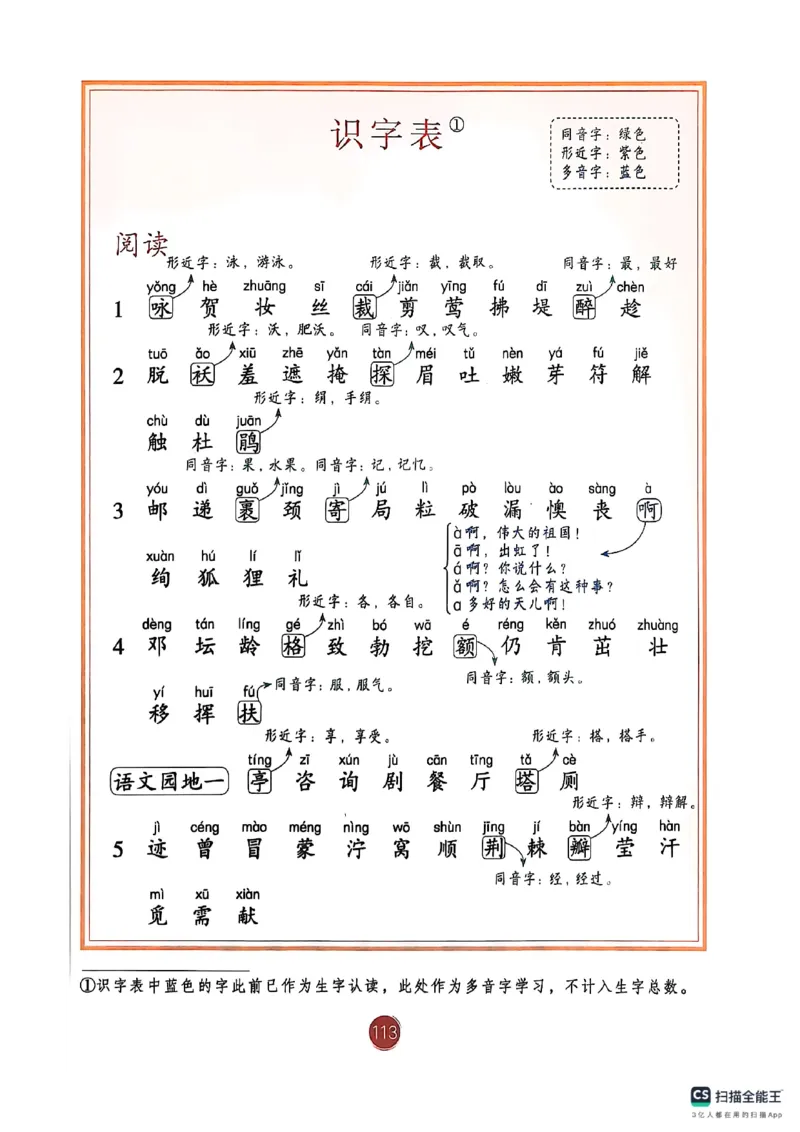 识字表①
同音字：绿色
形近字：紫色
多音字：蓝色
阅读
形近字：泳，游泳。 形近字：截，截取。 同音字：最，最好
yǒng hè zhuāng sī cái jiǎn yīng fú dī zuì chèn
1 咏 贺 妆 丝 裁 剪 莺 拂 堤 醉 趁
形近字：沃，肥沃。 同音字：叹，叹气。
tuō ǎo xiū zhē yǎn tàn méi tǔ nèn yá fú jiě
2 脱 袄 羞 遮 掩 探 眉 吐 嫩 芽 符 解
形近字：绢，手绢。
chù dù juān
触 杜 鹃
同音字：果，水果。同音字：记，记忆。
yóu dì guǒ jǐng jì jú lì pò lòu ào sàng à
3 邮 递 裹 颈 寄 局 粒 破 漏 懊 丧 啊
à 啊，伟大的祖国！
ā 啊，出虹了！
á 啊？你说什么？
ǎ 啊？怎么会有这种事？
ɑ 多好的天儿啊！
xuàn hú lí lǐ
绚 狐 狸 礼
形近字：各，各自。
dèng tán líng gé zhì bó wā é réng kěn zhuó zhuàng
4 邓 坛 龄 格 致 勃 挖 额 仍 肯 茁 壮
同音字：额，额头。
yí huī fú 同音字：服，服气。
移 挥 扶
形近字：享，享受。 形近字：搭，搭手。
tíng zī xún jù cān tīng tǎ cè
语文园地一 亭 咨 询 剧 餐 厅 塔 厕
形近字：辩，辩解。
jì céng mào méng nìng wō shùn jīng jí bàn yíng hàn
5 迹 曾 冒 蒙 泞 窝 顺 荆 棘 瓣 莹 汗
同音字：经，经过。
mì xū xiàn
觅 需 献
①识字表中蓝色的字此前已作为生字认读，此处作为多音字学习，不计入生字总数。
113
CS 扫描全能王
3亿人都在用的扫描App